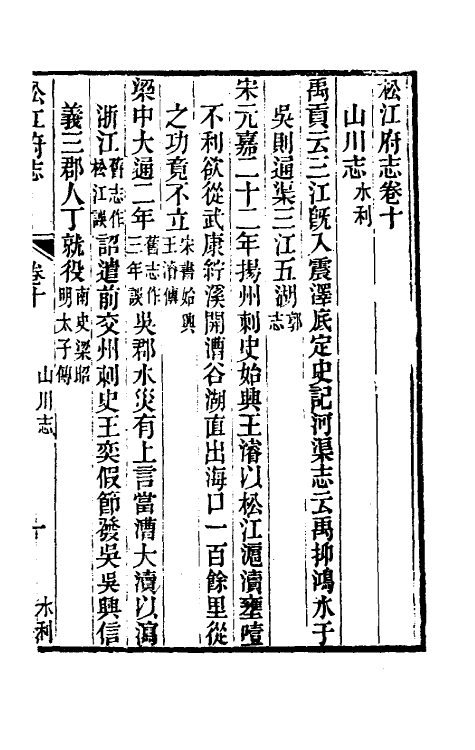 松江府志卷十
山川志 水利
禹貢云三江旣入震澤底定史記河渠志云禹抑鴻水于
吳則通渠三江五湖 郭志
宋元嘉二十二年揚州刺史始興王濬以松江滬瀆壅噎
不利欲從武康紵溪開漕谷湖直出海口一百餘里從
之功竟不立 宋書始興王濬傳
梁中大通二年 舊志作三年誤 吳郡水災有上言當漕大瀆以瀉
浙江 舊志作松江誤 詔遣前交州刺史王奕假節發吳吳興信
義三郡人丁就役 南史梁昭明太子傳
松江府志 卷十 山川志 一 水利